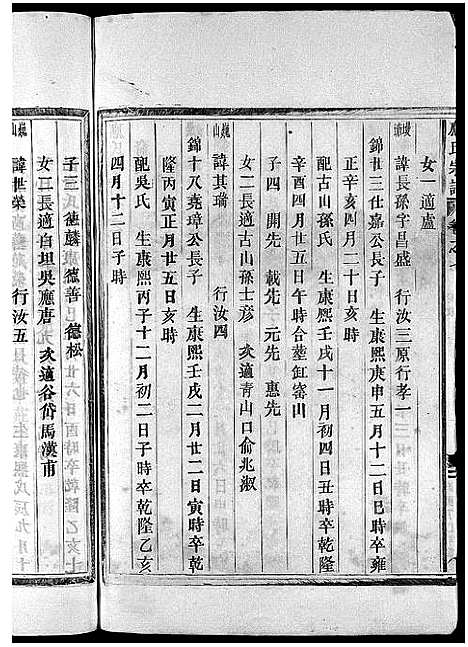 氏宗譜
女 適盧
諱長孫字昌盛 行汝三原行孝一
錦廿三仕嘉公長子 生康熙庚申五月十二日巳時卒雍
正辛亥四月二十日亥時
配古山孫氏 生康熙壬戌十一月初四日丑時卒乾隆
辛酉四月廿五日午時合塟缸窰山
子四 開先 載先 元先 惠先
女二長適古山孫士彥 次適青山口俞兆淑
巍山 諱其瑞 行汝四
錦十八堯璋公長子 生康熙壬戌二月廿二日寅時卒乾
隆丙寅正月廿五日亥時
配吳氏 生康熙丙子十二月初二日子時卒乾隆乙亥
四月十二日子時
子三 德麟 德善 德松
女二長適自坦吳應唐 次適谷岱馬漢甫
巍山 諱世榮 行汝五